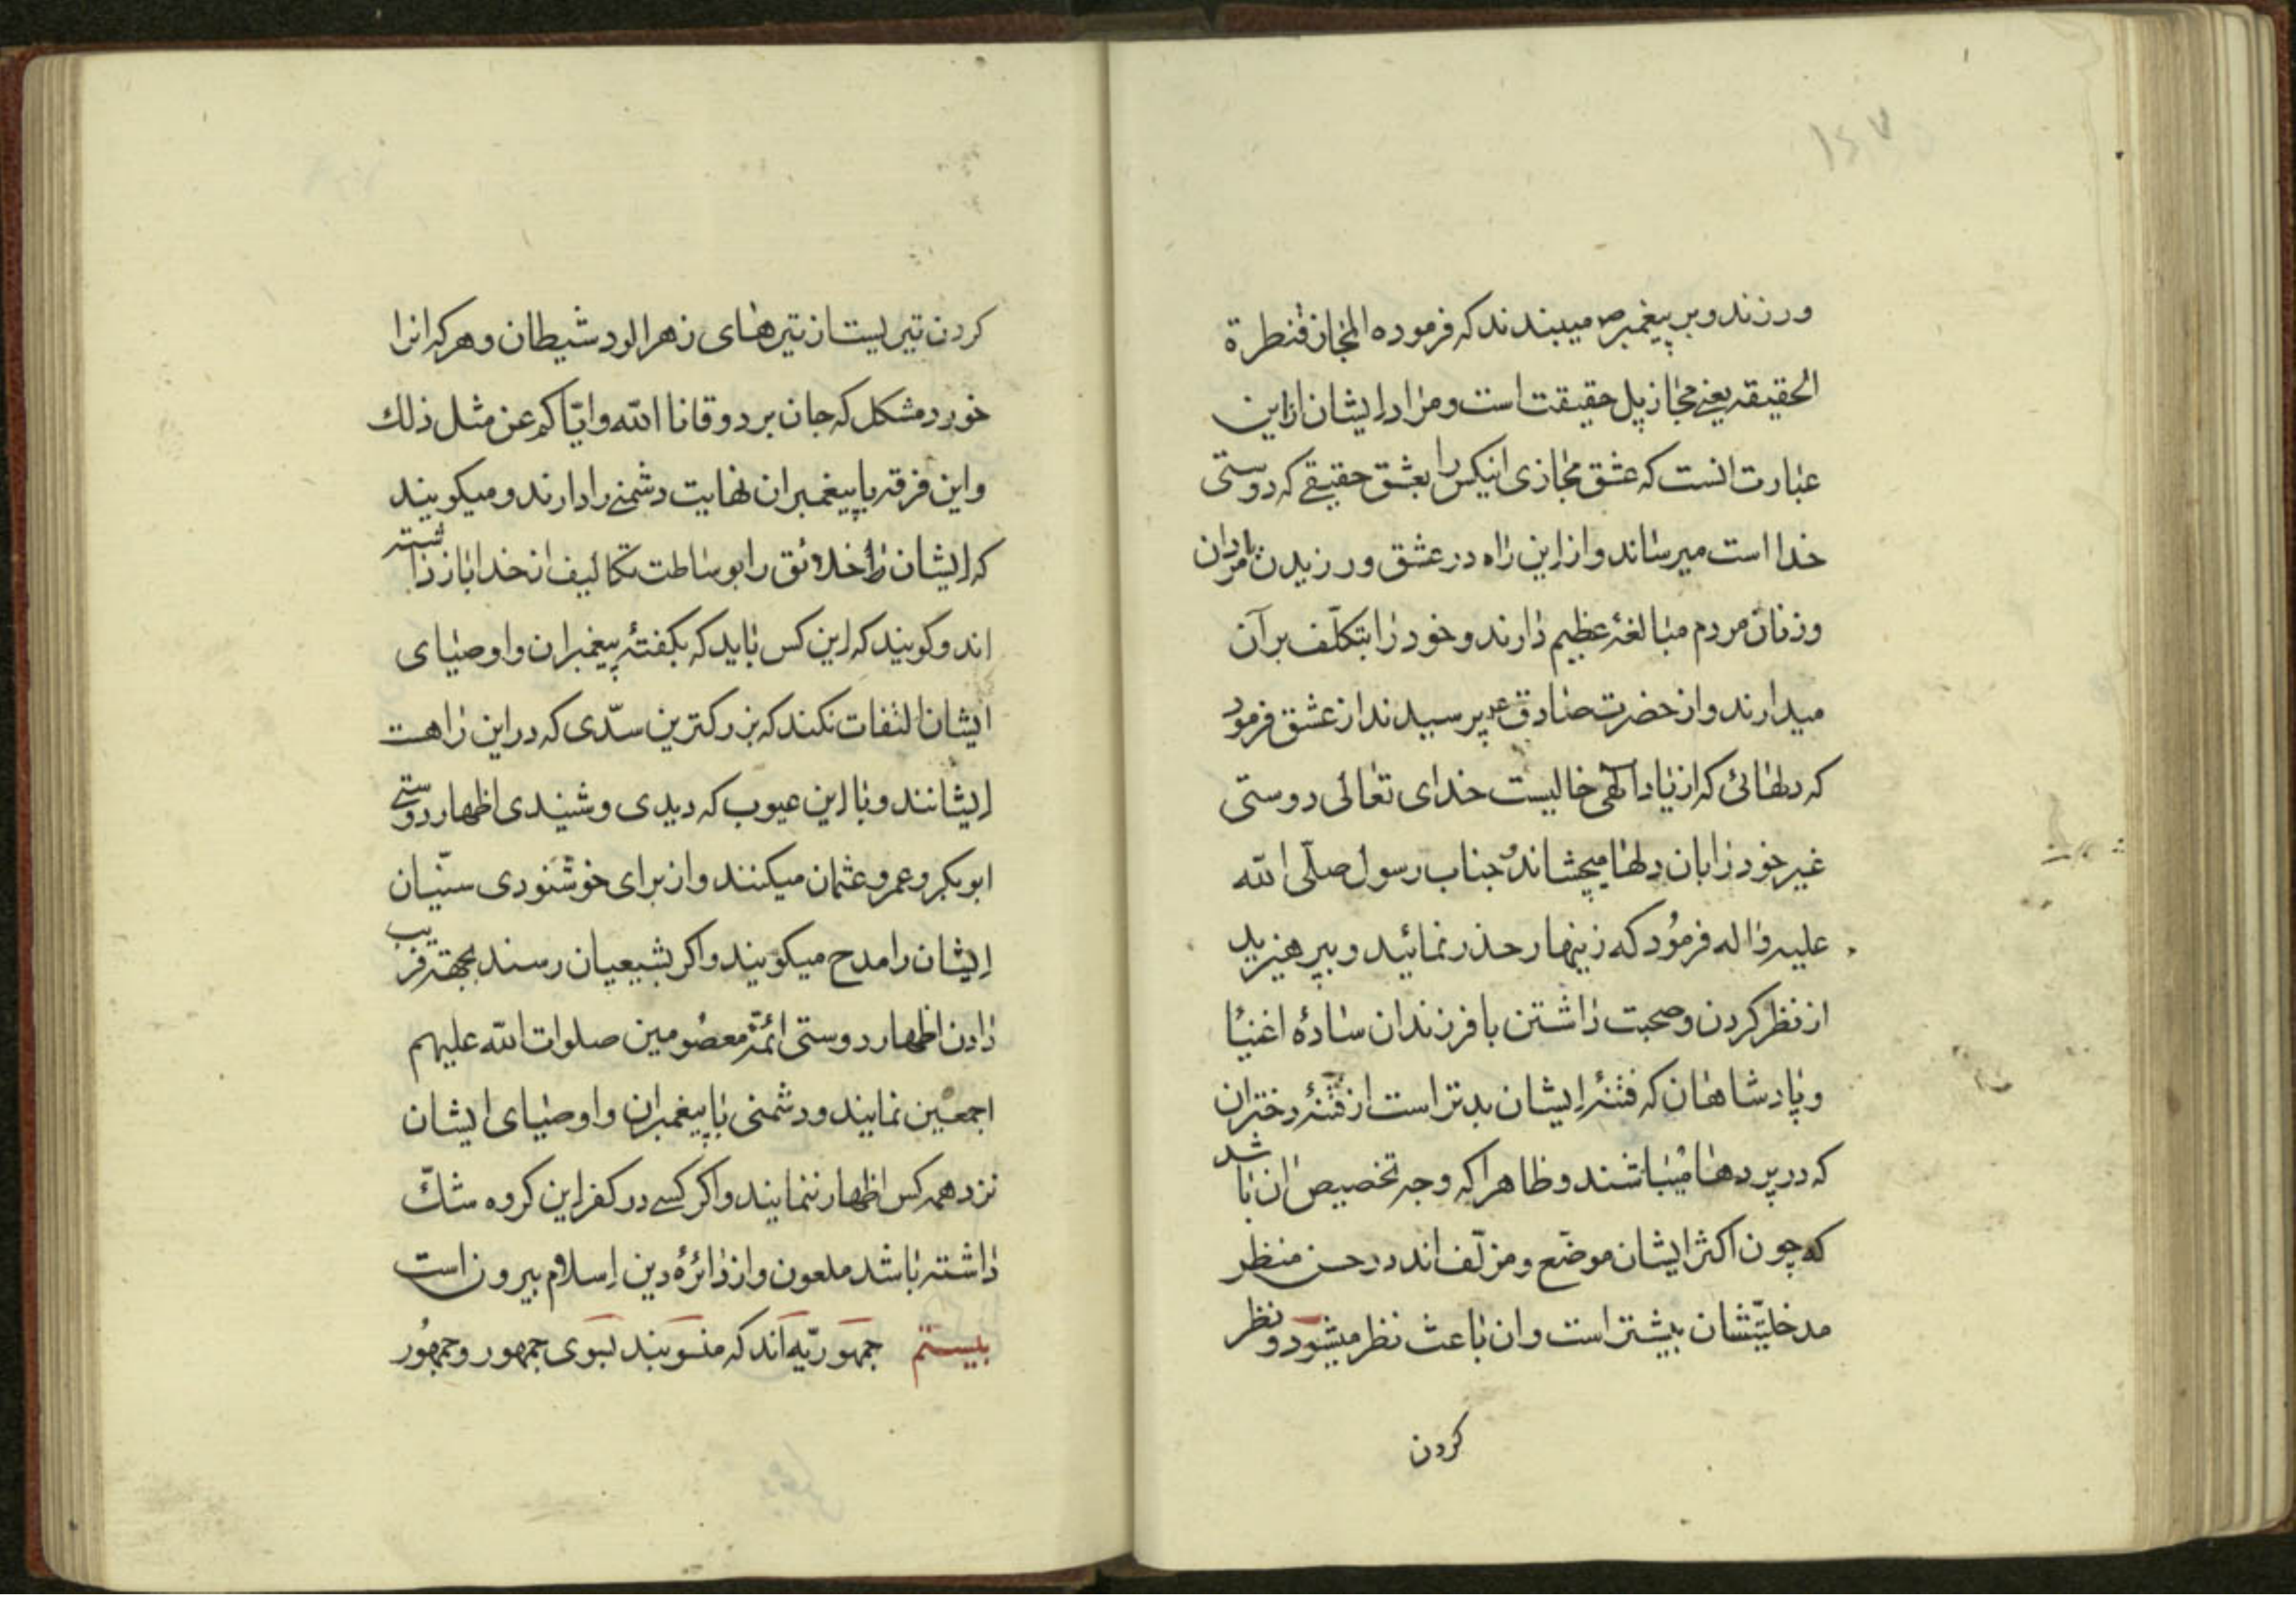 ۱۵۷
ورزند و بر پیغمبر ص میبندند که فرموده المجاز قنطرة
الحقیقه یعنی مجاز پل حقیقت است و مراد ایشان ازاین
عبارت انست که عشق مجازی اینکس را بعشق حقیقے که دوستی
خدا است میرساند و از این راه در عشق ورزیدن بامردان
و زنان مردم مبالغهٔ عظیم دارند و خود را بتکلّف برآن
میدارند و از حضرت صادق ع پرسیدند از عشق فرمود
که دلهائی که از یاد الهی خالیست خدای تعالی دوستی
غیر خود را بان دلها میچشاند و جناب رسول صلّی الله
علیه و اله فرمُود که زینهار حذر نمائید و بپرهیزید
از نظر کردن و صحبت داشتن با فرزندان سادهٔ اغنیا
و پادشاهان که فتنهٔ ایشان بدتر است از فتنهٔ دختران
که در پردها میباشند و ظاهرا که وجه تخصیص ان باشد
که چون اکثر ایشان موضّع و مزلّف اند در حسن منظر
مدخلیّتشان بیشتر است و ان باعث نظر میشود و نظر
کردن
کردن تیریست از تیرهای زهرالود شیطان و هرکه انرا
خورد مشکل که جان برد وقانا الله وایّاکم عن مثل ذلك
و این فرقه با پیغمبران نهایت دشمنے را دارند و میکویند
که ایشان خلائق را بوساطت تکالیف از خدا باز داشته
اند و کویند که این کس باید که بکفتهٔ پیغمبران و اوصیای
ایشان التفات نکند که بزرکترین سدّی که در این راهست
ایشانند و با این عیوب که دیدی و شنیدی اظهار دوستے
ابوبکر و عمر و عثمان میکنند و از برای خوشنودی سنّیان
ایشان را مدح میکویند و اکر بشیعیان رسند بجهته فریب
دادن اظهار دوستی ائمّه معصُومین صلوات الله علیهم
اجمعین نمایند و دشمنی با پیغمبران و اوصیای ایشان
نزد همه کس اظهار ننمایند و اکر کسے در کفر این کروه شكّ
داشته باشد ملعون و از دائرهٔ دین اسلام بیرون است
بیستم جمهوریّه اند که منسوبند بسوی جمهور و جمهُور